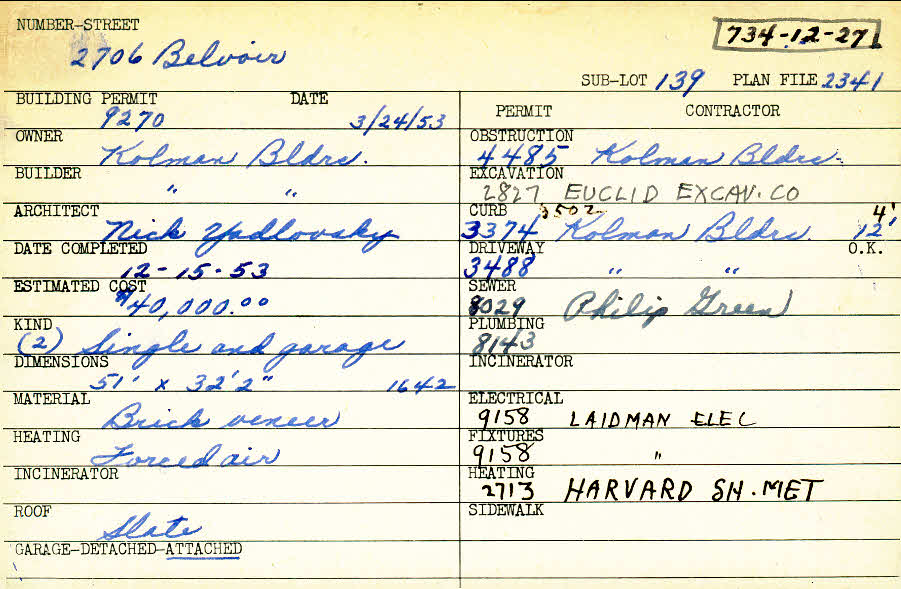 NUMBER-STREET
734-12-27
2706 Belvoir
SUB-LOT 139 PLAN FILE 2341
BUILDING PERMIT DATE
9270 3/24/53
OWNER
Kolman Bldrs.
BUILDER
" "
ARCHITECT
Nick Yadlovsky
DATE COMPLETED
12-15-53
ESTIMATED COST
$40,000.00
KIND
(2) Single and garage
DIMENSIONS
51' x 32'2" 1642
MATERIAL
Brick veneer
HEATING
Forced air
INCINERATOR
ROOF
Slate
GARAGE-DETACHED-ATTACHED
PERMIT CONTRACTOR
OBSTRUCTION
4485 Kolman Bldrs.
EXCAVATION
2827 EUCLID EXCAV. CO
CURB 3502 4'
3374 Kolman Bldrs. 12'
DRIVEWAY O.K.
3488 " "
SEWER
8029 Philip Green
PLUMBING
8143
INCINERATOR
ELECTRICAL
9158 LAIDMAN ELEC
FIXTURES
9158 "
HEATING
2713 HARVARD SH. MET
SIDEWALK